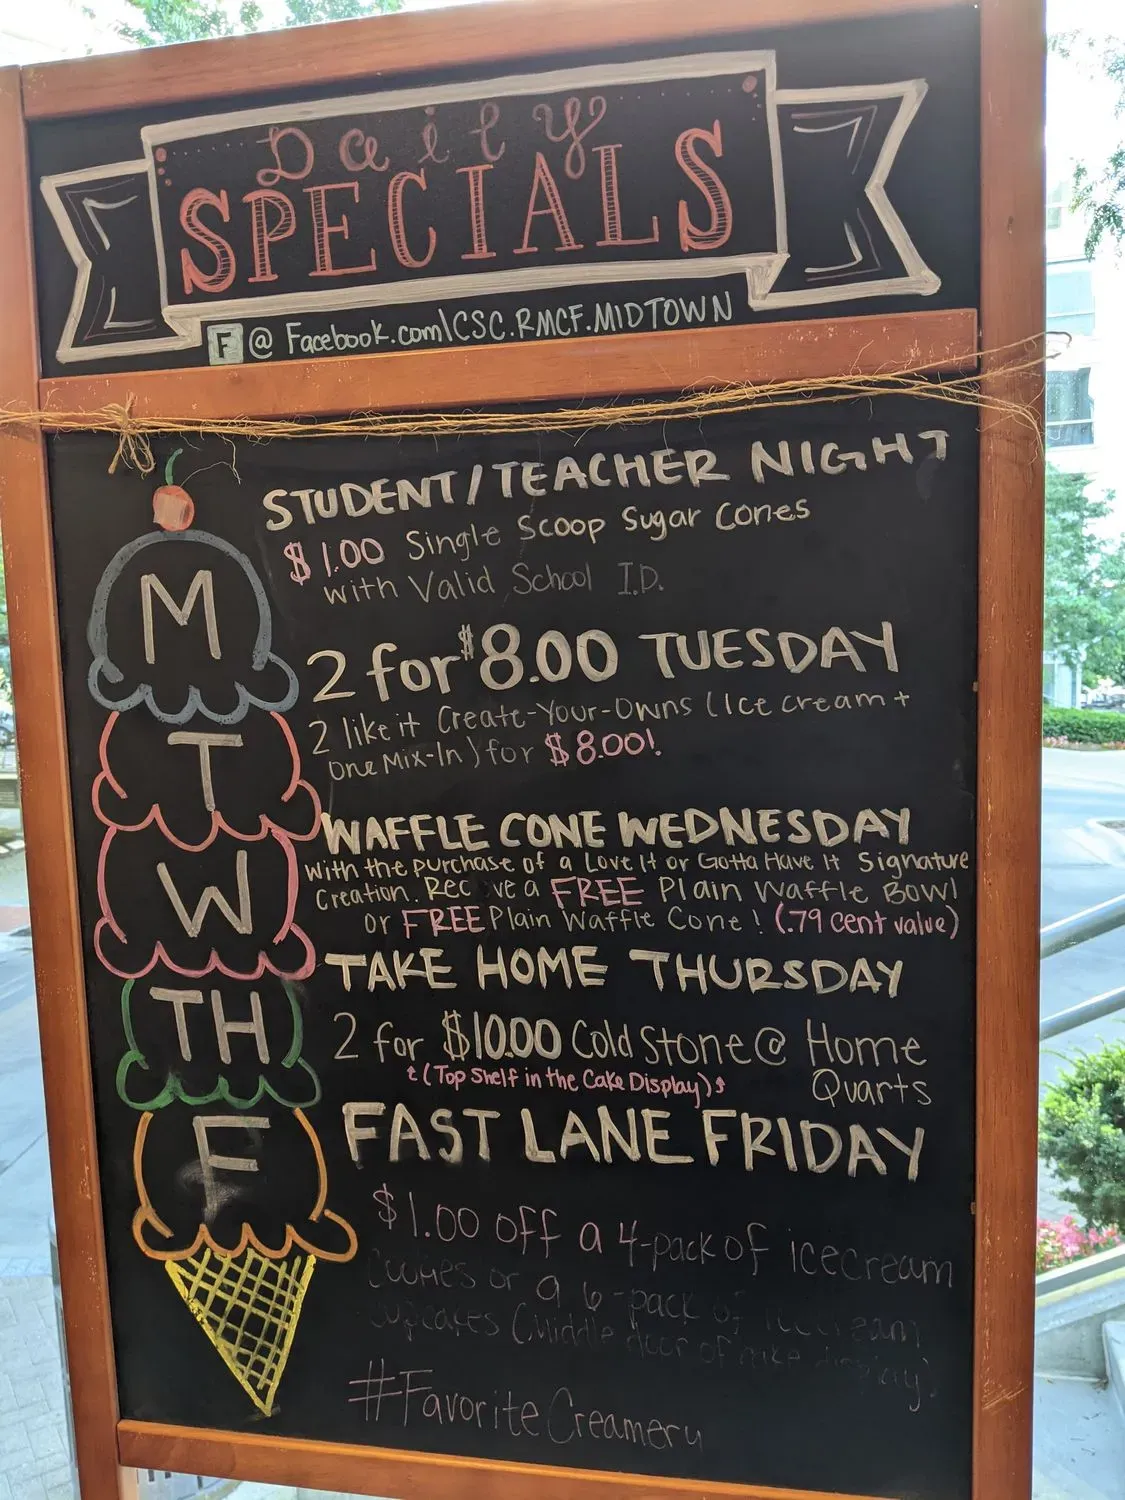 Daily
SPECIALS
F @ Facebook.com\CSC.RMCF.MIDTOWN
STUDENT/TEACHER NIGHT
M
$1.00 Single Scoop Sugar Cones
with Valid School I.D.
2 for $8.00 TUESDAY
T
2 like it Create-Your-Owns (Ice cream +
One Mix-In) for $8.00!
WAFFLE CONE WEDNESDAY
W
with the purchase of a Love It or Gotta Have It Signature
Creation. Rec ve a FREE Plain Waffle Bowl
or FREE Plain Waffle Cone! (.79 cent value)
TAKE HOME THURSDAY
TH
2 for $10.00 Cold Stone @ Home
(Top Shelf in the Cake Display) Quarts
FAST LANE FRIDAY
F
$1.00 off a 4-pack of icecream
cookies or a 6-pack of icecream
cupcakes (Middle door of display)
#FavoriteCreamery